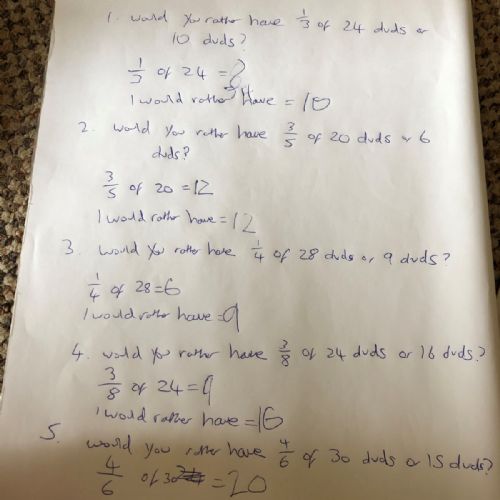 1. would you rather have 1/3 of 24 dvds or
10 dvds?
1/3 of 24 = 8
I would rather have = 10
2. would you rather have 3/5 of 20 dvds or 6
dvds?
3/5 of 20 = 12
I would rather have = 12
3. would you rather have 1/4 of 28 dvds or 9 dvds?
1/4 of 28 = 6
I would rather have = 9
4. would you rather have 3/8 of 24 dvds or 16 dvds?
3/8 of 24 = 9
I would rather have = 16
5. would you rather have 4/6 of 30 dvds or 15 dvds?
4/6 of 30 = 20